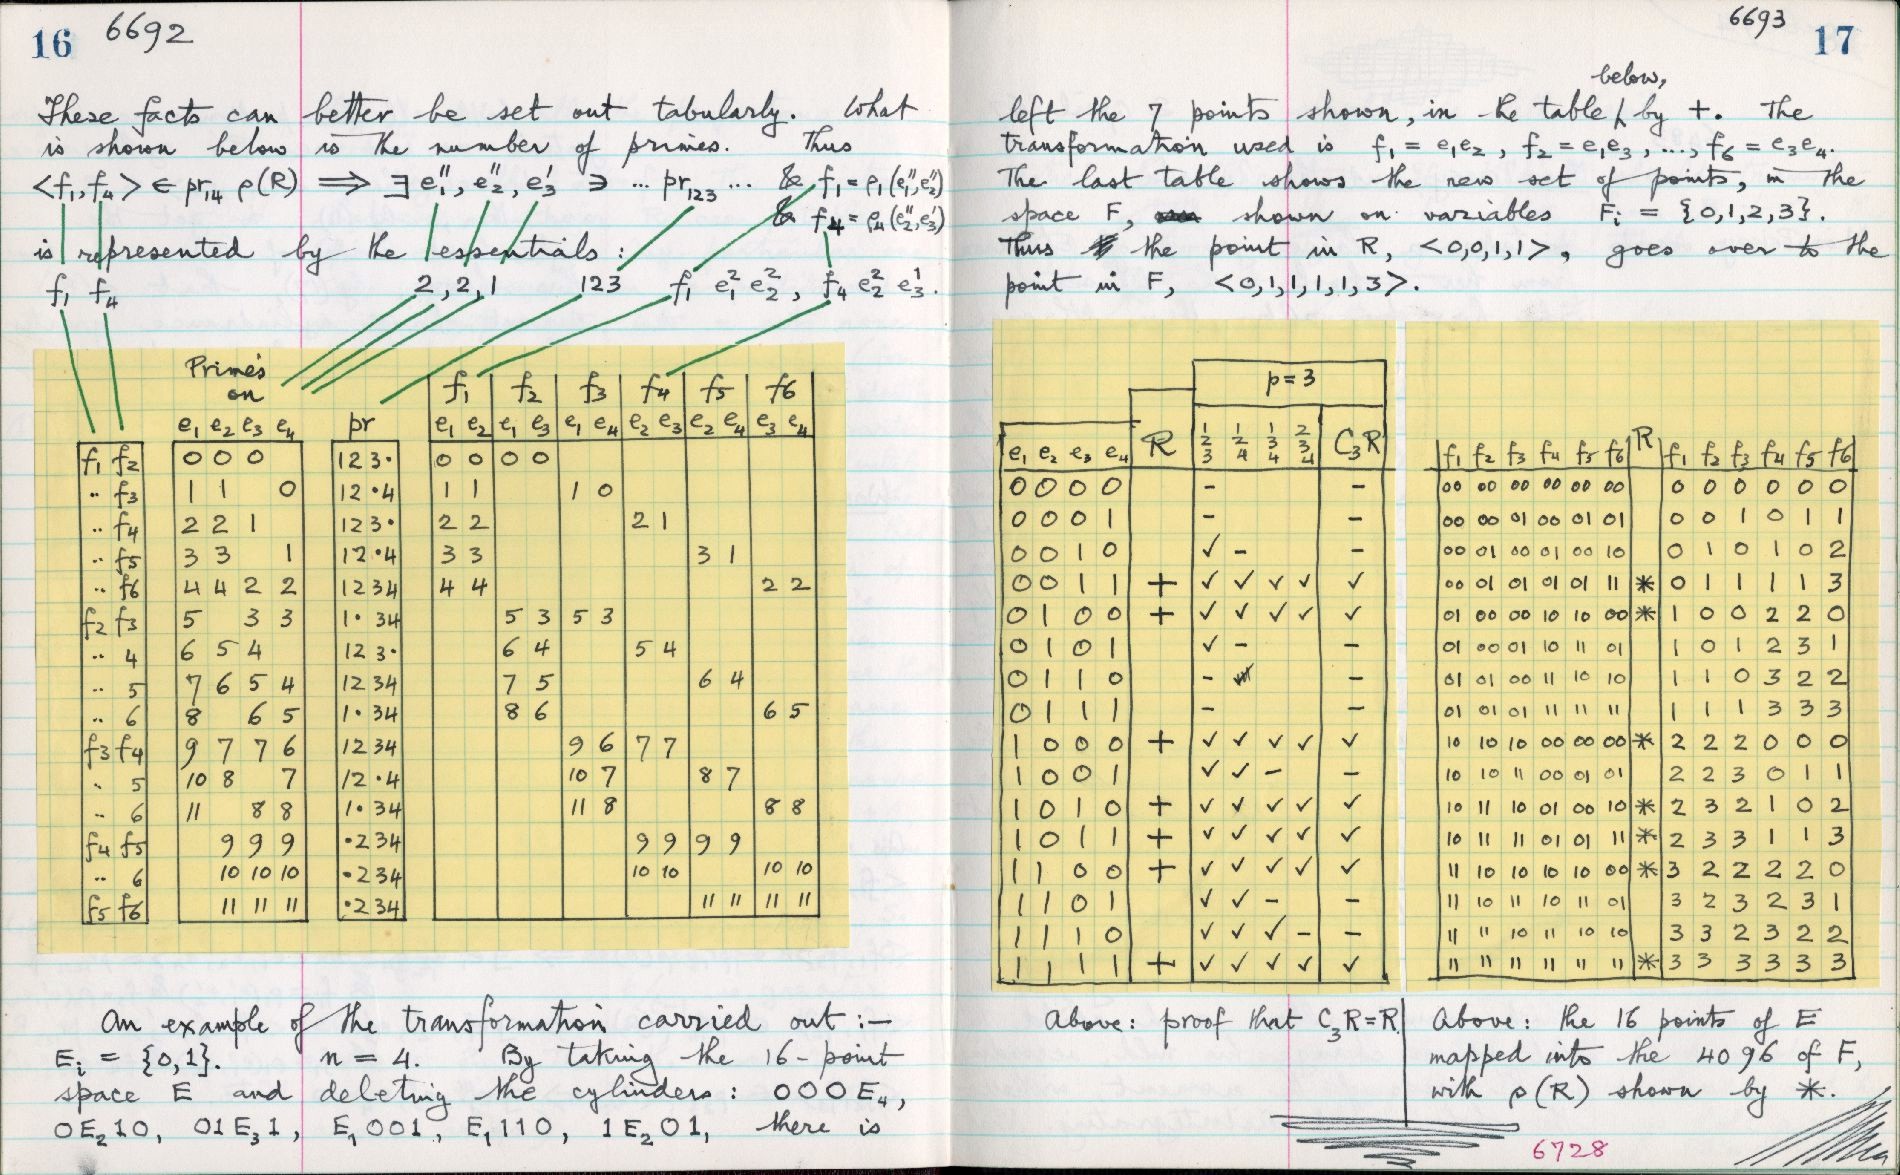 16 6692
These facts can better be set out tabularly. What
is shown below is the number of primes. Thus
<f1, f4> ∈ pr14 ρ(R) ⟹ ∃ e1'', e2'', e3' ∋ ... pr123 ... & f1 = ρ1(e1'', e2'')
& f4 = ρ4(e2'', e3')
is represented by the essentials:
f1 f4 2,2,1 123 f1 e1² e2², f4 e2² e3¹.
Primes
on
f1 f2 f3 f4 f5 f6
e1 e2 e3 e4 pr e1 e2 e1 e3 e1 e4 e2 e3 e2 e4 e3 e4
f1 f2 0 0 0 123· 0 0 0 0
·· f3 1 1 0 12·4 1 1 1 0
·· f4 2 2 1 123· 2 2 2 1
·· f5 3 3 1 12·4 3 3 3 1
·· f6 4 4 2 2 1234 4 4 2 2
f2 f3 5 3 3 1·34 5 3 5 3
·· 4 6 5 4 123· 6 4 5 4
·· 5 7 6 5 4 1234 7 5 6 4
·· 6 8 6 5 1·34 8 6 6 5
f3 f4 9 7 7 6 1234 9 6 7 7
·· 5 10 8 7 12·4 10 7 8 7
·· 6 11 8 8 1·34 11 8 8 8
f4 f5 9 9 9 ·234 9 9 9 9
·· 6 10 10 10 ·234 10 10 10 10
f5 f6 11 11 11 ·234 11 11 11 11
An example of the transformation carried out :—
Ei = {0,1}. n = 4. By taking the 16-point
space E and deleting the cylinders: 000E4,
0E210, 01E31, E1001, E1110, 1E201, there is
6693 17
below,
left the 7 points shown, in the table / by +. The
transformation used is f1 = e1e2, f2 = e1e3, ..., f6 = e3e4.
The last table shows the new set of points, in the
space F, shown on variables Fi = {0,1,2,3}.
Thus the point in R, <0,0,1,1>, goes over to the
point in F, <0,1,1,1,1,3>.
p = 3
e1 e2 e3 e4 R 123 124 134 234 C3R
0 0 0 0 - -
0 0 0 1 - -
0 0 1 0 ✓ - -
0 0 1 1 + ✓ ✓ ✓ ✓ ✓
0 1 0 0 + ✓ ✓ ✓ ✓ ✓
0 1 0 1 ✓ - -
0 1 1 0 - -
0 1 1 1 - -
1 0 0 0 + ✓ ✓ ✓ ✓ ✓
1 0 0 1 ✓ ✓ - -
1 0 1 0 + ✓ ✓ ✓ ✓ ✓
1 0 1 1 + ✓ ✓ ✓ ✓ ✓
1 1 0 0 + ✓ ✓ ✓ ✓ ✓
1 1 0 1 ✓ ✓ - -
1 1 1 0 ✓ ✓ ✓ - -
1 1 1 1 + ✓ ✓ ✓ ✓ ✓
f1 f2 f3 f4 f5 f6 R f1 f2 f3 f4 f5 f6
00 00 00 00 00 00 0 0 0 0 0 0
00 00 01 00 01 01 0 0 1 0 1 1
00 01 00 01 00 10 0 1 0 1 0 2
00 01 01 01 01 11 * 0 1 1 1 1 3
01 00 00 10 10 00 * 1 0 0 2 2 0
01 00 01 10 11 01 1 0 1 2 3 1
01 01 00 11 10 10 1 1 0 3 2 2
01 01 01 11 11 11 1 1 1 3 3 3
10 10 10 00 00 00 * 2 2 2 0 0 0
10 10 11 00 01 01 2 2 3 0 1 1
10 11 10 01 00 10 * 2 3 2 1 0 2
10 11 11 01 01 11 * 2 3 3 1 1 3
11 10 10 10 10 00 * 3 2 2 2 2 0
11 10 11 10 11 01 3 2 3 2 3 1
11 11 10 11 10 10 3 3 2 3 2 2
11 11 11 11 11 11 * 3 3 3 3 3 3
Above: proof that C3R = R.
Above: the 16 points of E
mapped into the 4096 of F,
with ρ(R) shown by *.
6728